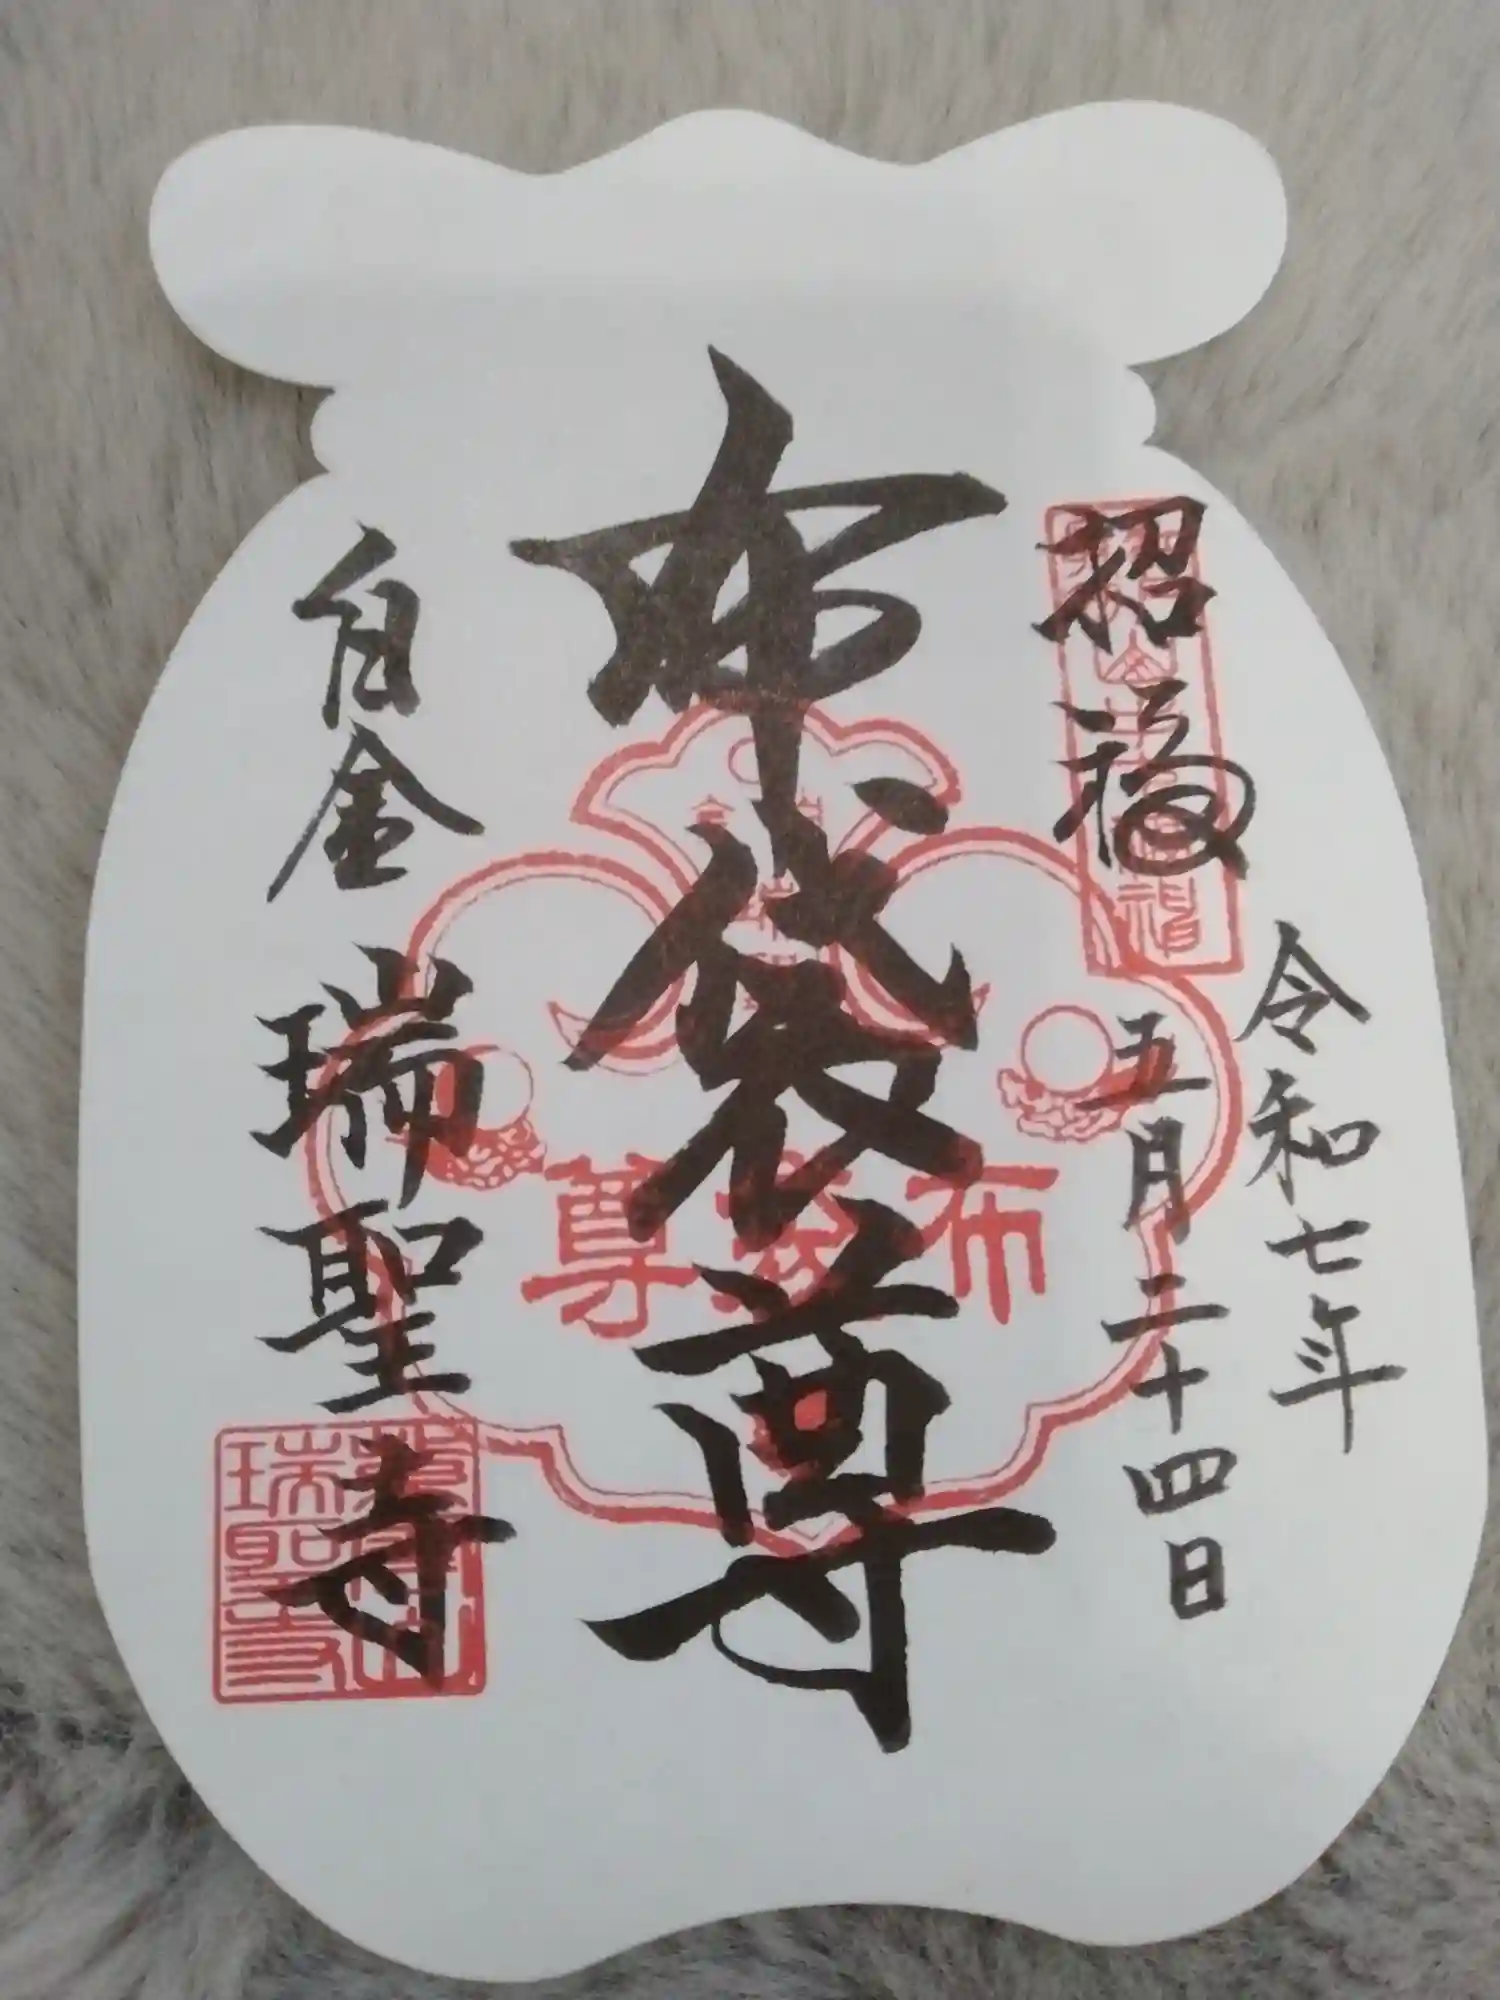 招福
令和七年
五月二十四日
布袋尊
布袋尊
白金
瑞聖寺
瑞聖寺